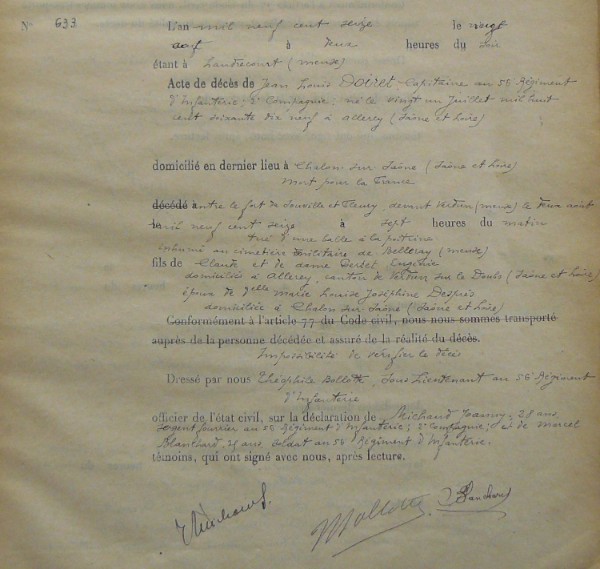 N° 633
L'an mil neuf cent seize le vingt
août à deux heures du soir
étant à Landrecourt (meuse)
Acte de décès de Jean Louis Doiret, Capitaine au 56 Régiment
d'Infanterie; 2e Compagnie; né le vingt un Juillet mil huit
cent soixante dix neuf à allerey (Saône et Loire)
domicilié en dernier lieu à Chalon sur Saône (Saône et Loire)
mort pour la France
décédé à entre le fort de Souville et Fleury devant Verdun (meuse) le deux août
mil neuf cent seize à sept heures du matin
tué d'une balle à la poitrine
inhumé au cimetière militaire de Belleray (meuse)
fils de Claude et de dame Eugénie
domiciliés à Allerey, canton de Verdun sur le Doubs (Saône et Loire)
époux de marie Louise Joséphine Desprès
domiciliée à Chalon sur Saône (Saône et Loire)
Conformément à l'article 77 du Code civil, nous nous sommes transporté
auprès de la personne décédée et assuré de la réalité du décès.
Impossibilité de vérifier le décès
Dressé par nous Théophile Bollotte, Sous Lieutenant au 56 Régiment
d'Infanterie
officier de l'état civil, sur la déclaration de Michaud 28 ans
Sergent fourrier au 56 Régiment d'Infanterie; 2e Compagnie; et de marcel
Blanchard, ans, soldat au 56 Régiment d'Infanterie.
témoins, qui ont signé avec nous, après lecture.